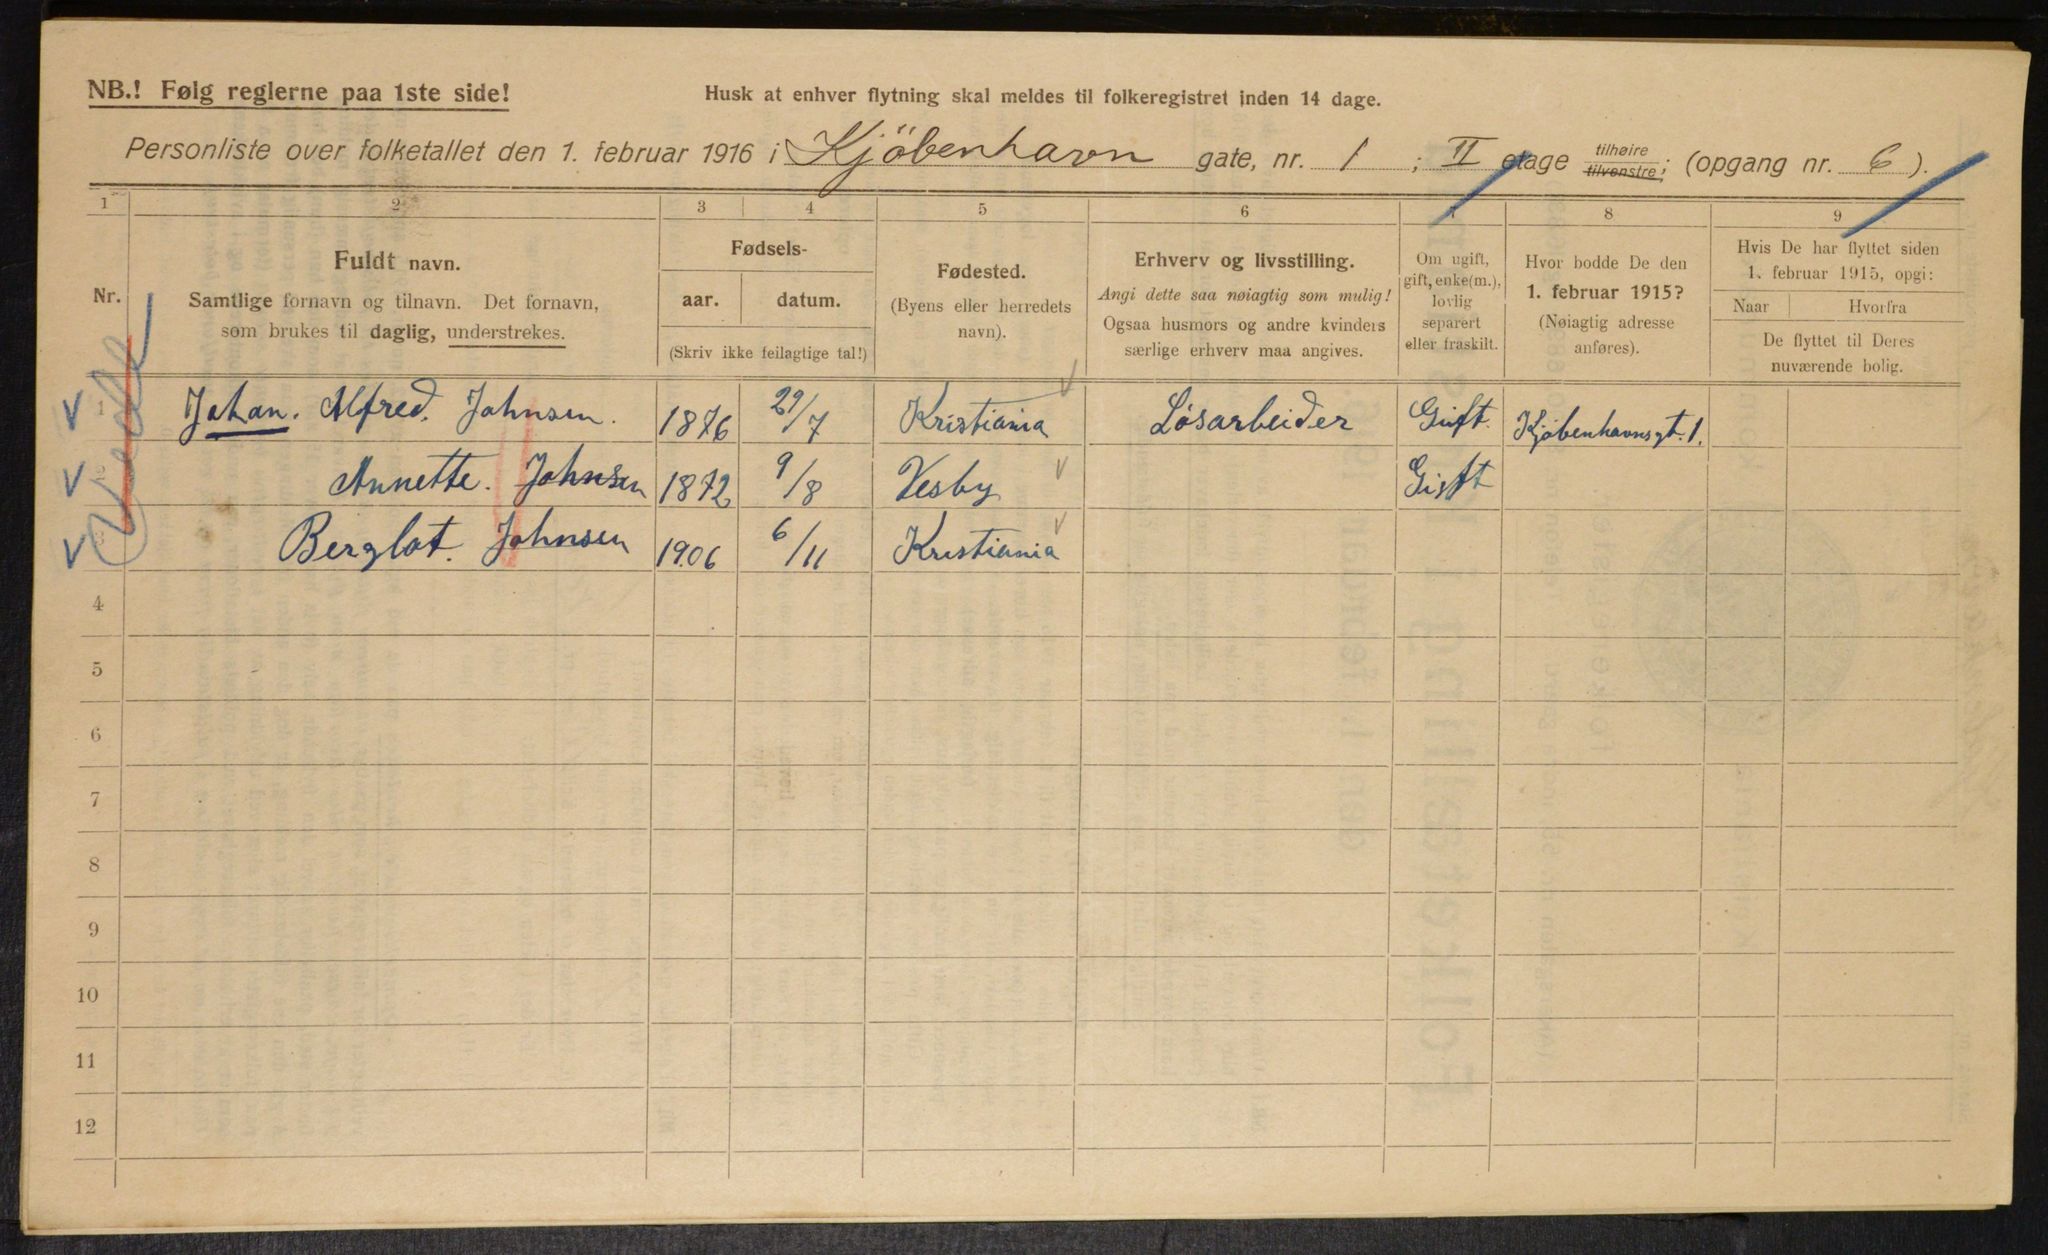 NB.! Følg reglerne paa 1ste side!
Husk at enhver flytning skal meldes til folkeregistret inden 14 dage.
Personliste over folketallet den 1. februar 1916 i Kjöbenhavn gate, nr. 1 ; II etage tilhøire tilvenstre; (opgang nr. 6 ).
1 2 3 4 5 6 7 8 9
Nr.
Fuldt navn.
Samtlige fornavn og tilnavn. Det fornavn,
som brukes til daglig, understrekes.
Fødsels-
aar. datum.
(Skriv ikke feilagtige tal!)
Fødested.
(Byens eller herredets
navn).
Erhverv og livsstilling.
Angi dette saa nøiagtig som mulig!
Ogsaa husmors og andre kvinders
særlige erhverv maa angives.
Om ugift,
gift, enke(m.),
lovlig
separert
eller fraskilt.
Hvor bodde De den
1. februar 1915?
(Nøiagtig adresse
anføres).
Hvis De har flyttet siden
1. februar 1915, opgi:
Naar Hvorfra
De flyttet til Deres
nuværende bolig.
1 Johan. Alfred. Johnsen. 1876 29/7 Kristiania Løsarbeider Gift. Kjøbenhavnsgt. 1.
2 Annette. Johnsen 1872 9/8 Vesby Gift
3 Berglot. Johnsen 1906 6/11 Kristiania
4
5
6
7
8
9
10
11
12